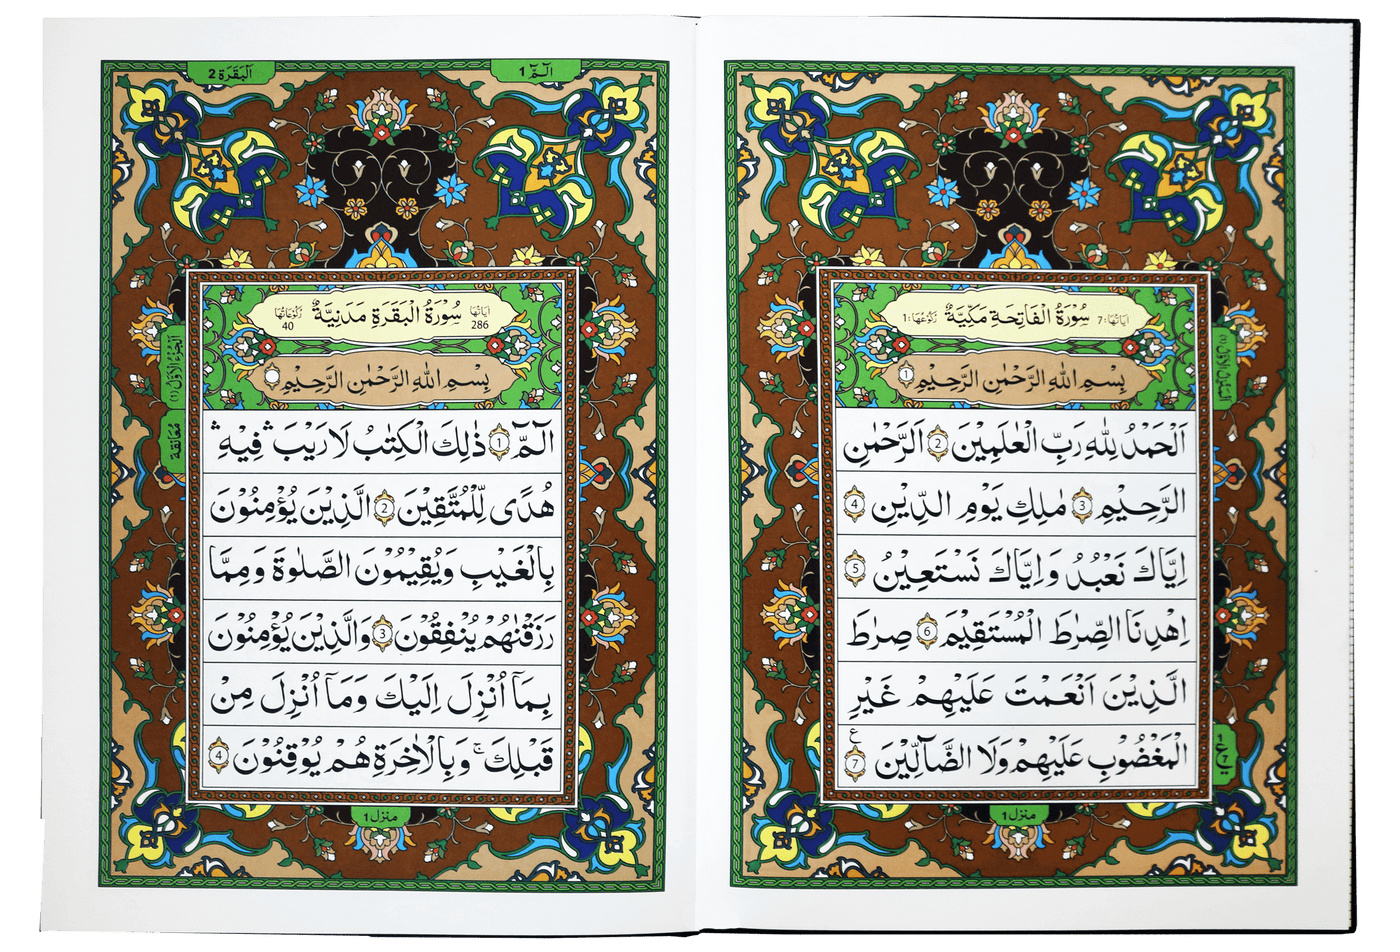 سُوْرَةُ الْفَاتِحَةِ مَكِّيَّةٌ
اٰيَاتُهَا: 7
رُكُوْعُهَا: 1
بِسْمِ اللّٰهِ الرَّحْمٰنِ الرَّحِيْمِ 1
اَلْحَمْدُ لِلّٰهِ رَبِّ الْعٰلَمِيْنَ 2 الرَّحْمٰنِ
الرَّحِيْمِ 3 مٰلِكِ يَوْمِ الدِّيْنِ 4
اِيَّاكَ نَعْبُدُ وَاِيَّاكَ نَسْتَعِيْنُ 5
اِهْدِنَا الصِّرٰطَ الْمُسْتَقِيْمَ 6 صِرٰطَ
الَّذِيْنَ اَنْعَمْتَ عَلَيْهِمْ غَيْرِ
الْمَغْضُوْبِ عَلَيْهِمْ وَلَا الضَّآلِّيْنَ 7
ع
منزل 1
الٓمّٓ 1
الْبَقَرَة 2
سُوْرَةُ الْبَقَرَةِ مَدَنِيَّةٌ
اٰيَاتُهَا 286
رُكُوْعَاتُهَا 40
بِسْمِ اللّٰهِ الرَّحْمٰنِ الرَّحِيْمِ
الٓمّٓ 1 ذٰلِكَ الْكِتٰبُ لَا رَيْبَ ۛ فِيْهِ ۛ
هُدًى لِّلْمُتَّقِيْنَ 2 الَّذِيْنَ يُؤْمِنُوْنَ
بِالْغَيْبِ وَيُقِيْمُوْنَ الصَّلٰوةَ وَمِمَّا
رَزَقْنٰهُمْ يُنْفِقُوْنَ 3 وَالَّذِيْنَ يُؤْمِنُوْنَ
بِمَآ اُنْزِلَ اِلَيْكَ وَمَآ اُنْزِلَ مِنْ
قَبْلِكَ ۚ وَبِالْاٰخِرَةِ هُمْ يُوْقِنُوْنَ 4
اَلْجُزْءُ الْاَوَّلُ (1)
معانقة
منزل 1